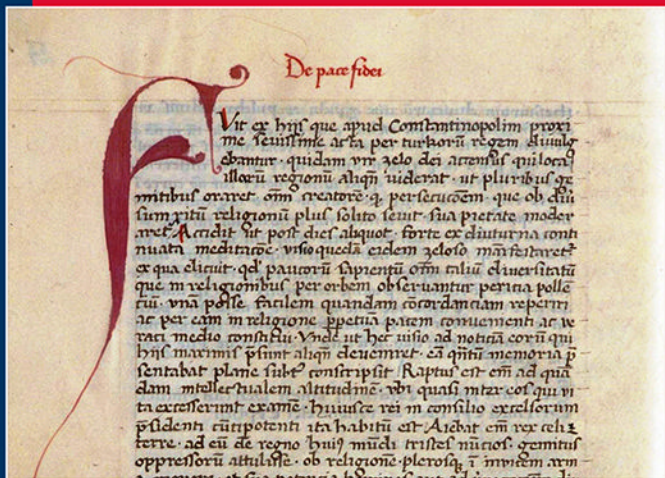 De pace fidei
Fuit ex hijs que apud Constantinopolim proxi
me seuissime acta per turkorū regem diuulg
ebantur · quidam vir zelo dei accensus qui loca
illorū regionū aliqn̄ viderat · ut pluribus ge
mitibus oraret om̄ creatorē · q̨ persecucōem · que ob diu
sum ritū religionū plus solito seuit · sua pietate moder
aret᷑ Accidit ut post dies aliquot · forte ex diuturna conti
nuata meditacōe · visio quedā eidem zeloso manifestaret᷑
ex qua elicuit · qd' paucorū sapientū om̄ taliū diuersitatū
que in religionibus per orbem obseruantur pericia pollē
ciū · vnā posse facilem quandam cōcordanciam reperiri
ac per eam in religione ꝑpetuā pacem conuenienti ac ve
raci medio constitui · Vnde ut hec uisio ad noticiā eorū qui
hijs maximis p̄sunt aliqn̄ deueniret · eā q̄ntū memoria p̄
sentabat plane subt᷑ conscripsit Raptus est em̄ ad quā
dam intellectualem altitudinē · vbi quasi inter eos qui vi
ta excesserunt examē · huiusce rei in consilio excelsorum
p̄sidenti cūctipotenti ita habitū est · Aiebat em̄ rex celi ⁊
terre · ad eū de regno huiꝰ mūdi tristes nūcios · gemitus
oppressorū attulisse · ob religionē · plerosq̨ ī inuicem arm